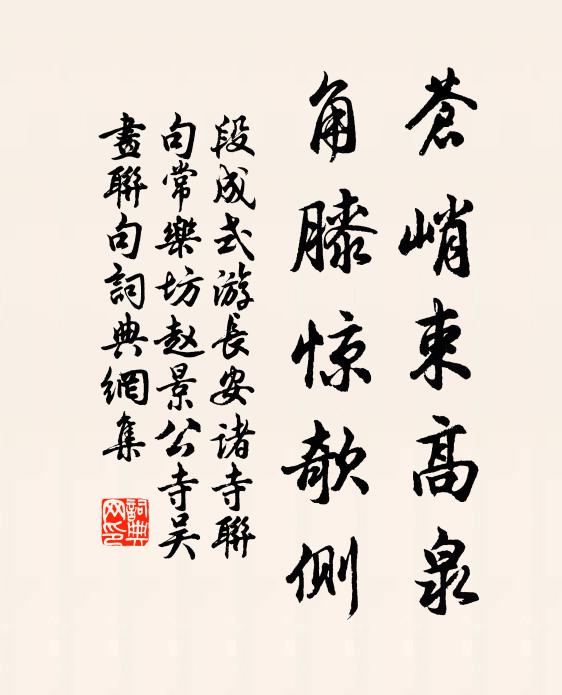 蒼峭束高泉
角膝惊欹側
段成式游長安諸寺聯
句常樂坊赵景公寺吴
畫聯句詞典網集
詞典网印